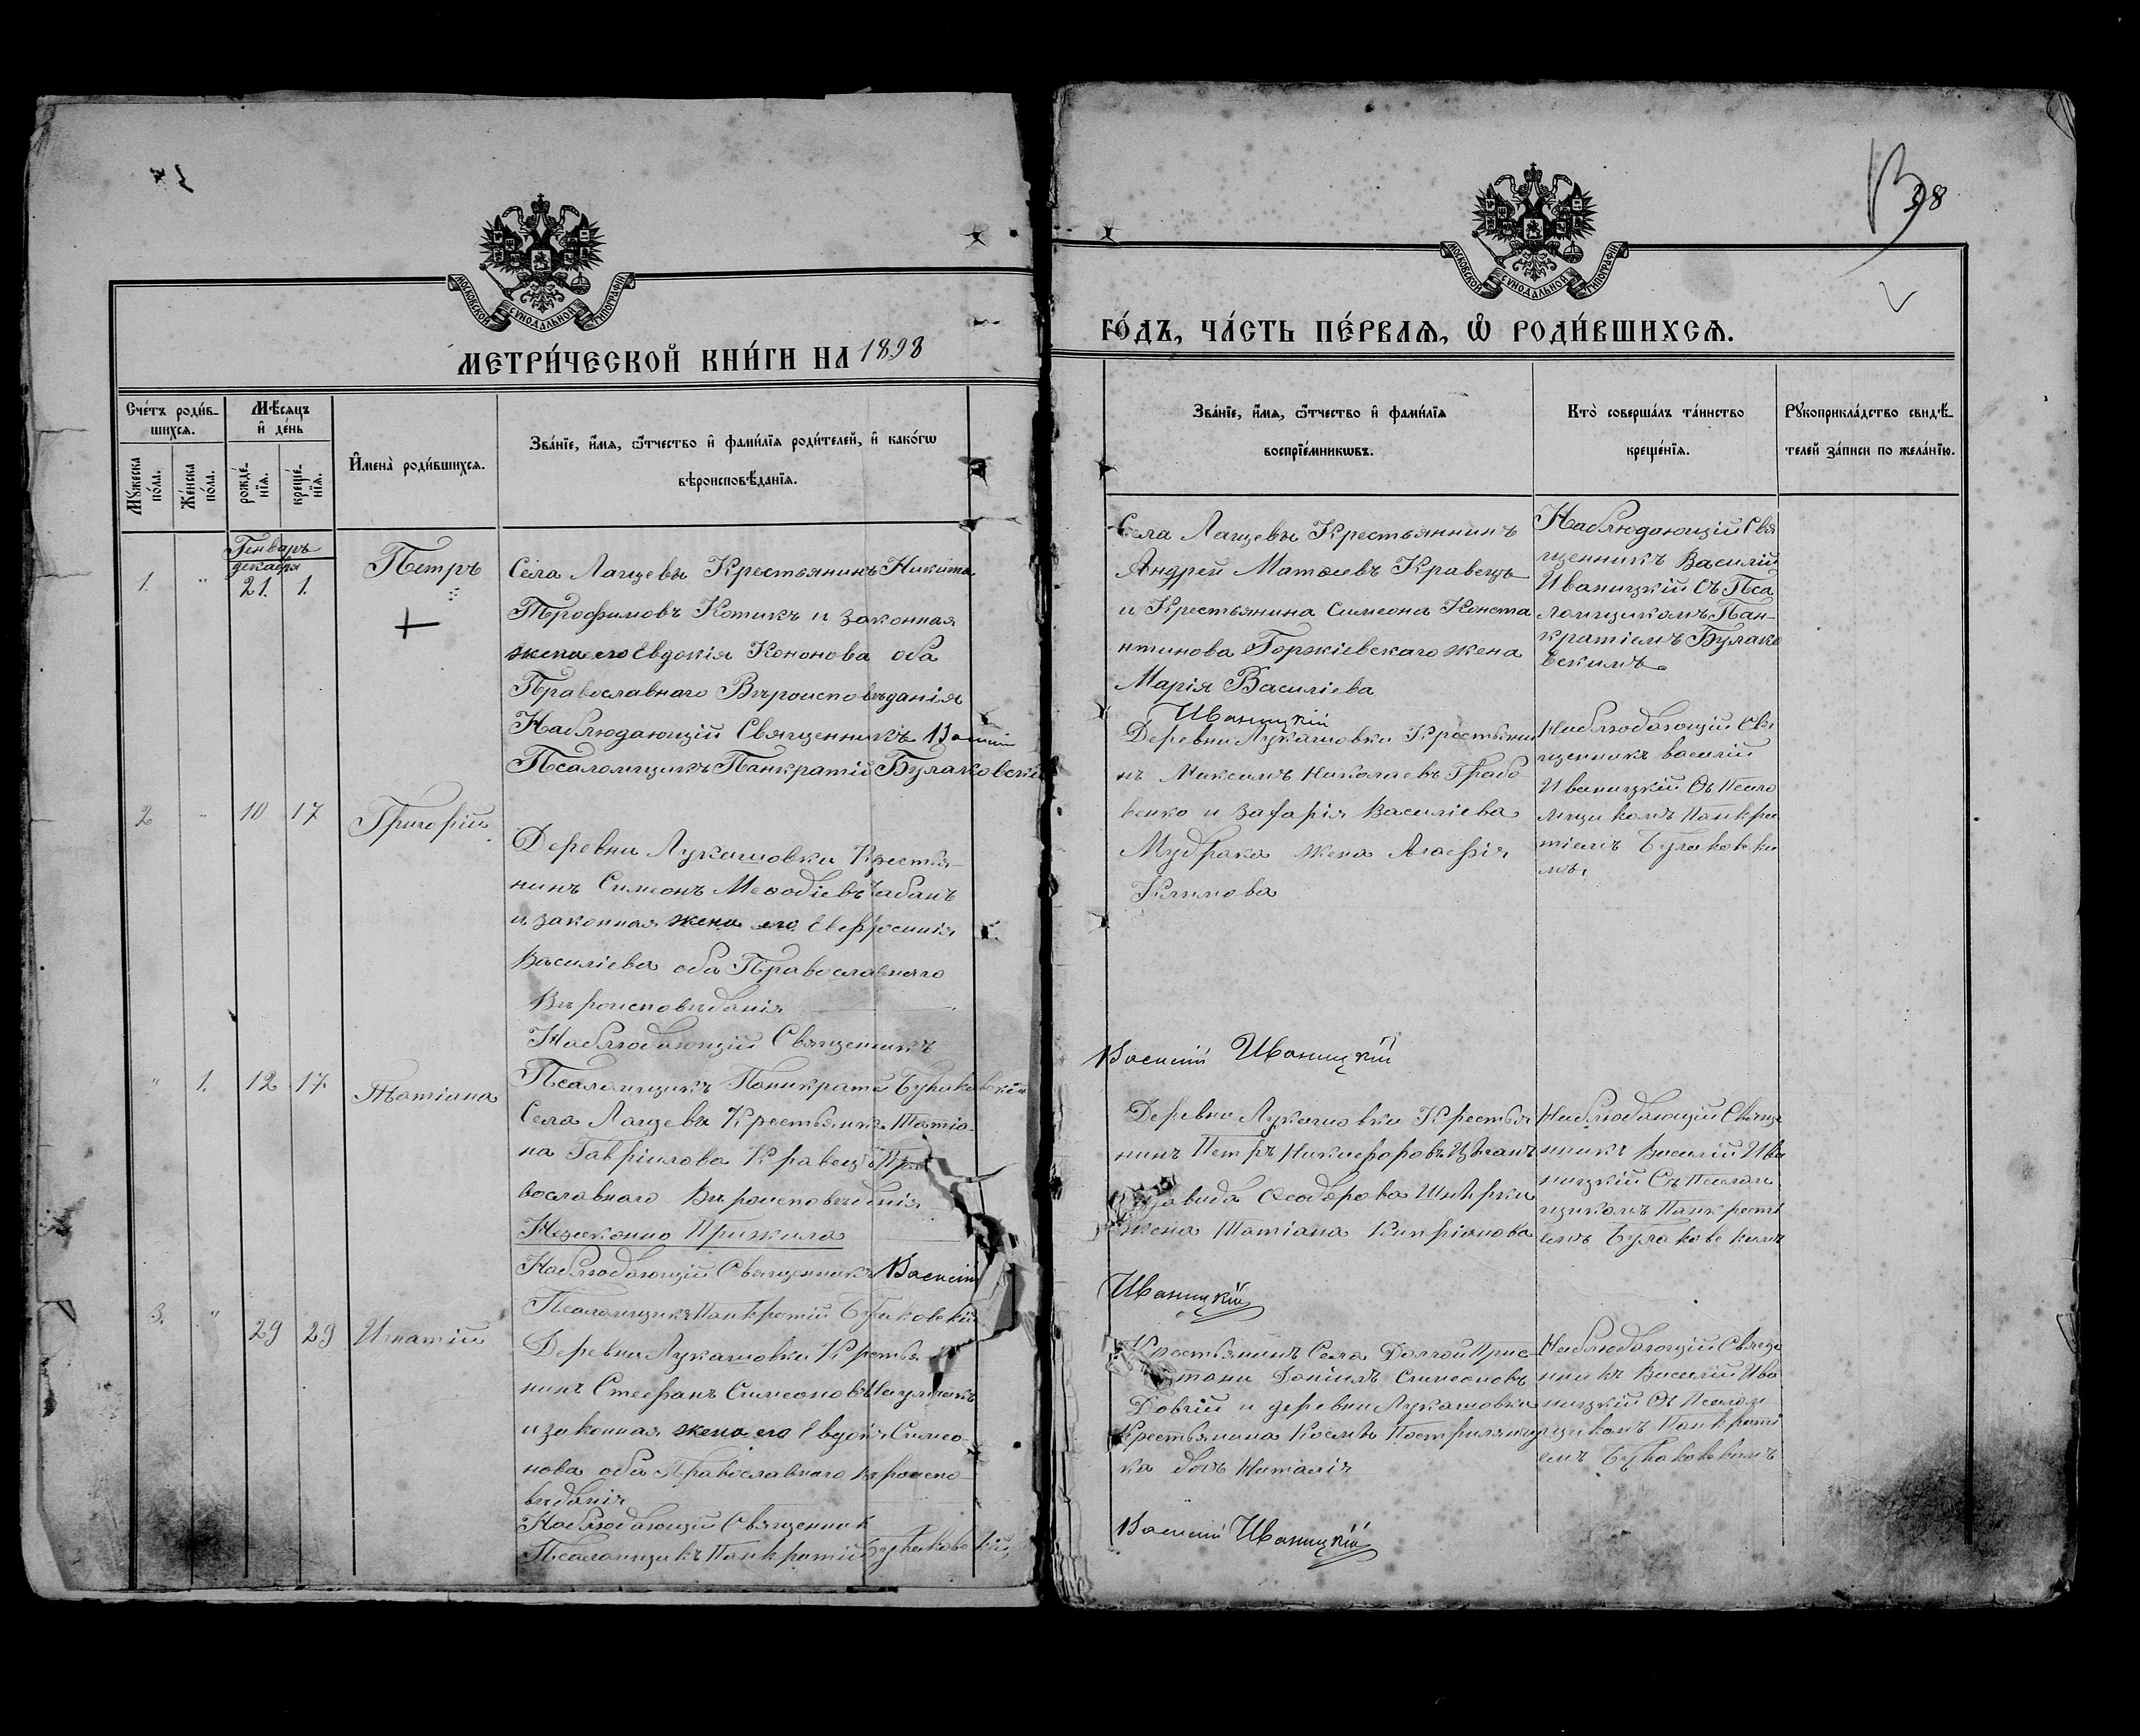 38
МОСКОВСКОЙ СУНОДАЛЬНОЙ ТИПОГРАФІИ
МОСКОВСКОЙ СУНОДАЛЬНОЙ ТИПОГРАФІИ
МЕТРИ́ЧЕСКОЙ КНИ́ГИ НА 1898
ГО́ДЪ, ЧА́СТЬ ПЕ́РВАѦ, Ѡ҆ РОДИ́ВШИХСѦ.
Сче́тъ роди́в-
шихсѧ.
Мꙋ́жеска по́ла.
Же́нска по́ла.
Мѣ́сѧцъ
и҆ де́нь
рожде́-
нїѧ.
креще́-
нїѧ.
И҆мена̀ роди́вшихсѧ.
Зва́нїе, и҆́мѧ, ѻ҆́тчество и҆ фами́лїѧ роди́телей, и҆ како́гѡ
вѣроисповѣ́данїѧ.
Зва́нїе, и҆́мѧ, ѻ҆́тчество и҆ фами́лїѧ
воспрїе́мникѡвъ.
Кто̀ соверша́лъ та́инство
креще́нїѧ.
Рꙋкоприкла́дство свидѣ́-
телей за́писи по жела́нїю.
Генварь
декабря
1. " 21. 1.
Петръ
Села Лащевы Крестьянинъ Никита
Трофимовъ Котикъ и законная
жена его Евдокія Кононова оба
Православнаго Вѣроисповѣданія
Наблюдающій Священникъ Василій
Псаломщикъ Панкратій Булаковскій
Села Лащевы Крестьянинъ
Андрей Матѳеевъ Кравецъ
и Крестьянина Симеона Конста
нтинова Горжіевскаго жена
Марія Василіева
Иваницкій
Наблюдающій Свя
щенникъ Василій
Иваницкій Съ Пса
ломщикомъ Пан-
кратіемъ Булако
вскимъ
2 " 10 17
Григорій
Деревни Лукашовки Крестья-
нинъ Симеонъ Меѳодіевъ Чабанъ
и законная жена его Евфросинія
Василіева оба Православнаго
Вѣроисповѣданія
Наблюдающій Священникъ
Псаломщикъ Панкратій Булаковскій
Деревни Лукашовки Крестьяни
нъ Максимъ Николаевъ Грабо-
венко и Василіева
Мудрака жена Агафія
Климова
Василій Иваницкій
Наблюдающій Свя
щенникъ Василій
Иваницкій Съ Псало
мщикомъ Панкра
тіемъ Булаковски
мъ.
" 1. 12 17.
Татіана
Села Лащевы Крестьянка Татіа-
на Гавріилова Кравецъ Пра
вославнаго Вѣроисповѣданія
Незаконно Прижила
Наблюдающій Священникъ Василій
Псаломщикъ Панкратій Булаковскій
Деревни Лукашовки Крестья
нинъ Петръ Никифоровъ
Давида Ѳеодорова
жена Татіана Кипріанова
Иваницкій
Наблюдающій Священ
никъ Василій Ива
ницкій Съ Псалом
щикомъ Панкраті
емъ Булаковскимъ
3. " 29 29
Игнатій
Деревни Лукашовки Крестья
нинъ Стефанъ Симеоновъ
и законная жена его Евдокія Симео-
нова оба Православнаго Вѣроиспо-
вѣданія
Наблюдающій Священник
Псаломщикъ Панкратій Булаковскій
Крестьянинъ Села Долгой Прис-
тани Даніилъ Симеоновъ
Довгій и деревни Лукашовки
Крестьянина Космы
ка дочь Наталія
Василій Иваницкій
Наблюдающій Священ
никъ Василій Ива
ницкій Съ Псалом
щикомъ Панкраті
емъ Булаковскимъ